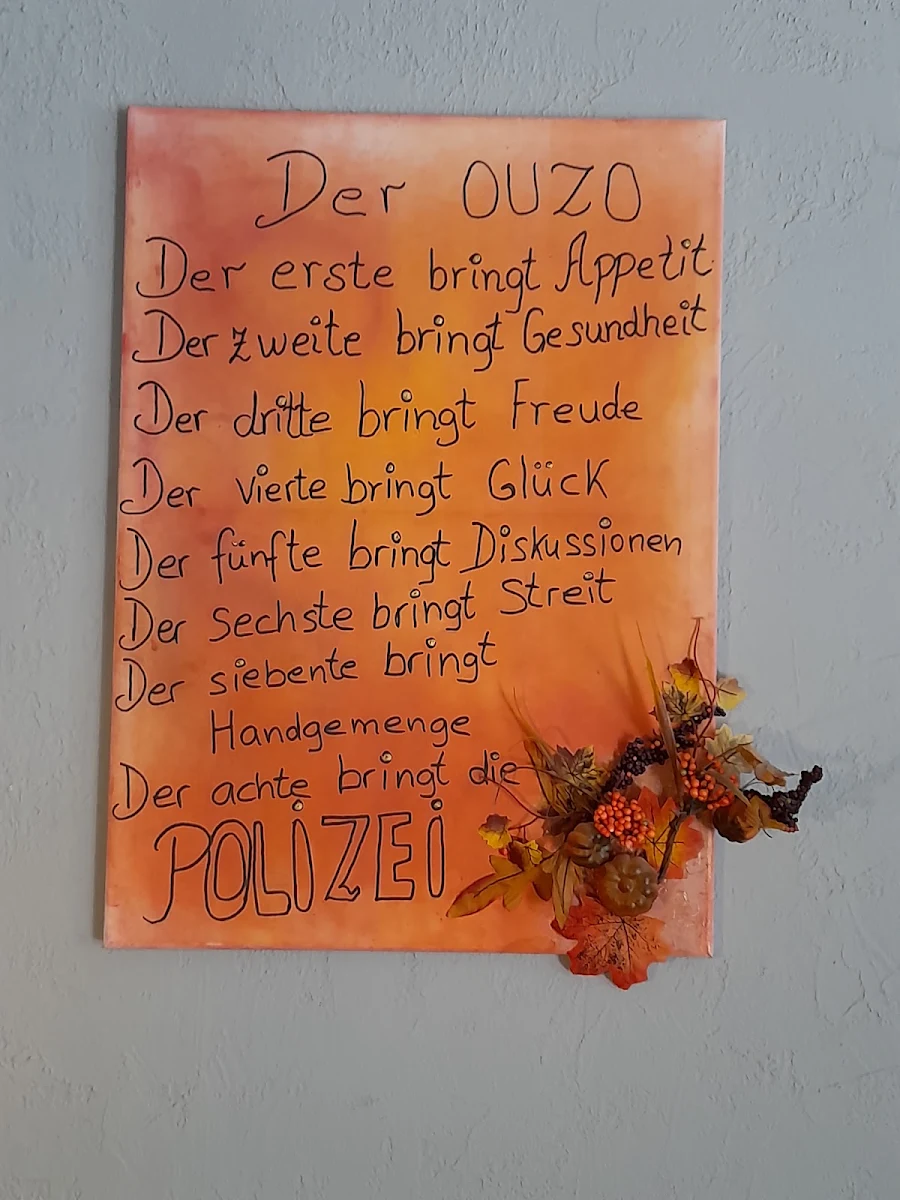 Der OUZO
Der erste bringt Appetit
Der zweite bringt Gesundheit
Der dritte bringt Freude
Der vierte bringt Glück
Der fünfte bringt Diskussionen
Der Sechste bringt Streit
Der siebente bringt
Handgemenge
Der achte bringt die
POLiZEi